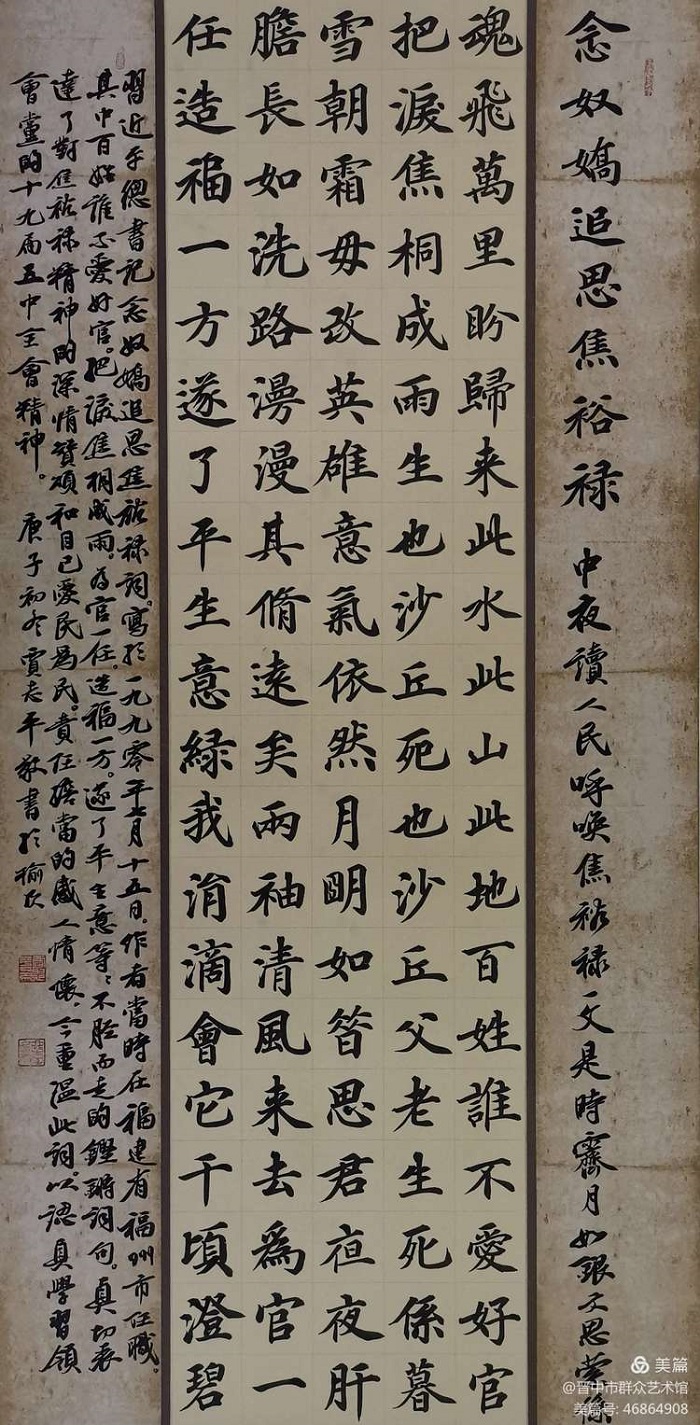 念奴嬌追思焦裕禄
中夜讀人民呼唤焦裕禄一文是時霽月如銀文思縈係
魂飛萬里盼歸来此水此山此地百姓誰不愛好官
把淚焦桐成雨生也沙丘死也沙丘父老生死係暮
雪朝霜毋改英雄意氣依然月明如昔思君夜夜肝
膽長如洗路漫漫其脩遠矣兩袖清風来去爲官一
任造福一方遂了平生意緑我涓滴會它千頃澄碧
習近平總書記念奴嬌追思焦裕禄詞。寫於一九九零年七月十五日。作者當時在福建省福州市任職。
其中百姓誰不愛好官。把淚焦桐成雨。为官一任。造福一方。遂了平生意等、不胫而走的鏗鏘詞句。真切表
達了對焦裕禄精神的深情贊頌和自己愛民爲民。責任擔當的感人情懷、今重温此詞。以認真學習領
會黨的十九届五中全會精神。 庚子初冬賈志平敬書於榆次
美篇
@晋中市群众艺术馆
美篇号: 46864908